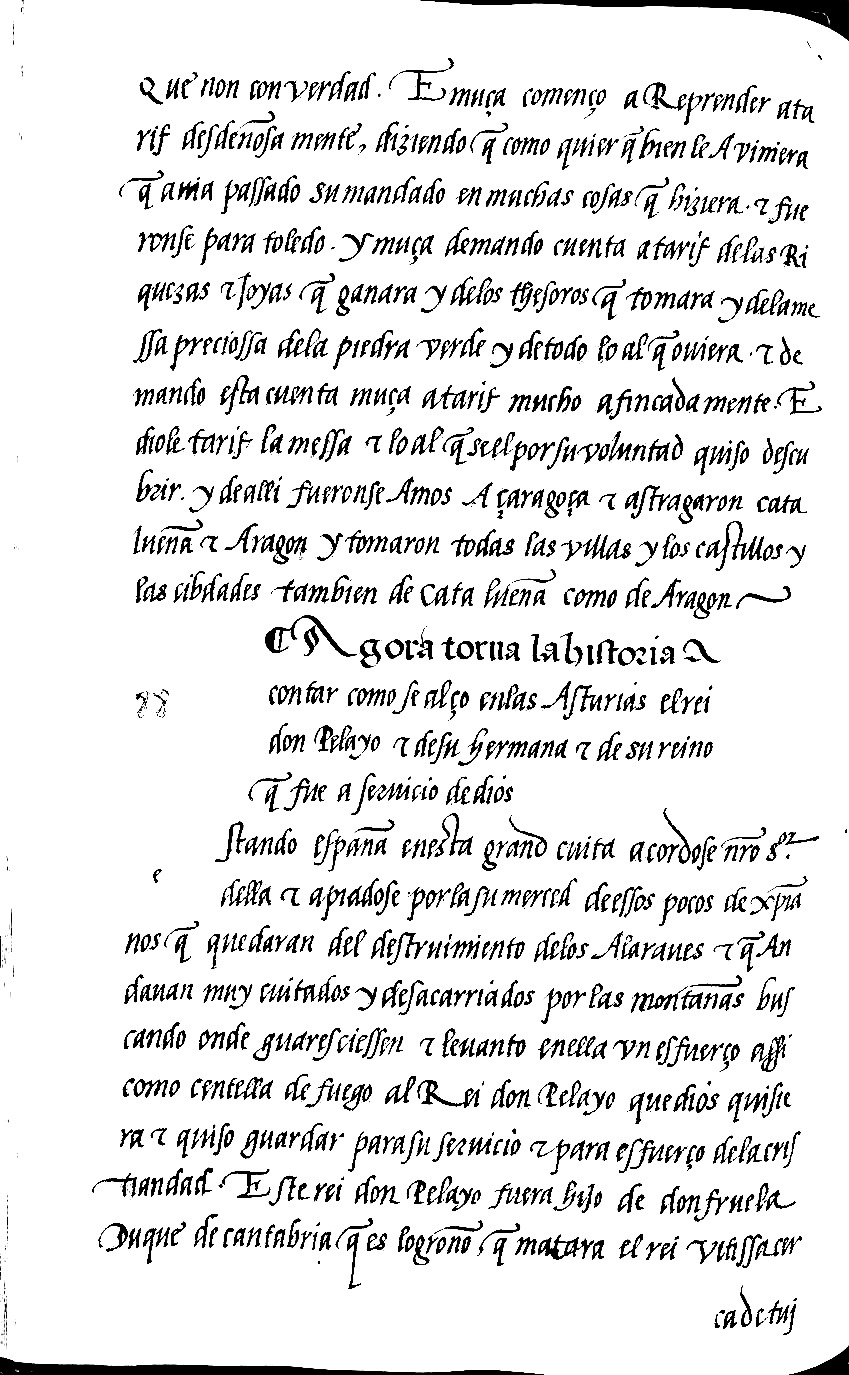 Que non con verdad. E muça començo a Reprender ata
rif desdeñosa mente, diziendo q̃ como quier q̃ bien le Aviniera
q̃ avia passado su mandado en muchas cosas q̃ hiziera. τ fue
ronse para toledo. y muça demando cuenta a tarif de las Ri
quezas τ Joyas q̃ ganara y delos thesoros q̃ tomara y dela me
ssa preciossa dela piedra verde y de todo lo al q̃ oviera. τ de
mando esta cuenta muça a tarif mucho afincada mente. E
diole tarif la messa τ lo al q̃ se el por su voluntad quiso descu
brir. y de alli fueronse Amos A çaragoça τ astragaron cata
lueña τ Aragon y tomaron todas las villas y los castillos y
las cibdades tambien de Cata lueña como de Aragon
¶ Agora torna la historia A
88 contar como se alço en las Asturias el rei
don Pelayo τ de su hermana τ de su reino
q̃ fue a servicio de dios
e Stando españa en esta grand cuita acordose nr̃o s.or
della τ apiadose por la su merced de essos pocos de xp̃ia
nos q̃ quedaran del destruimiento delos Alaraves τ q̃ An
davan muy cuitados y desacarriados por las montañas bus
cando onde guaresciessen τ levanto en ella vn esfuerço assi
como centella de fuego al Rei don Pelayo que dios quisie
ra τ quiso guardar para su servicio τ para esfuerço dela cris
tiandad. Este rei don Pelayo fuera hijo de don fruela
Duque de cantabria q̃ es logroño, q̃ matara el rei vitissa cer
ca de tuj